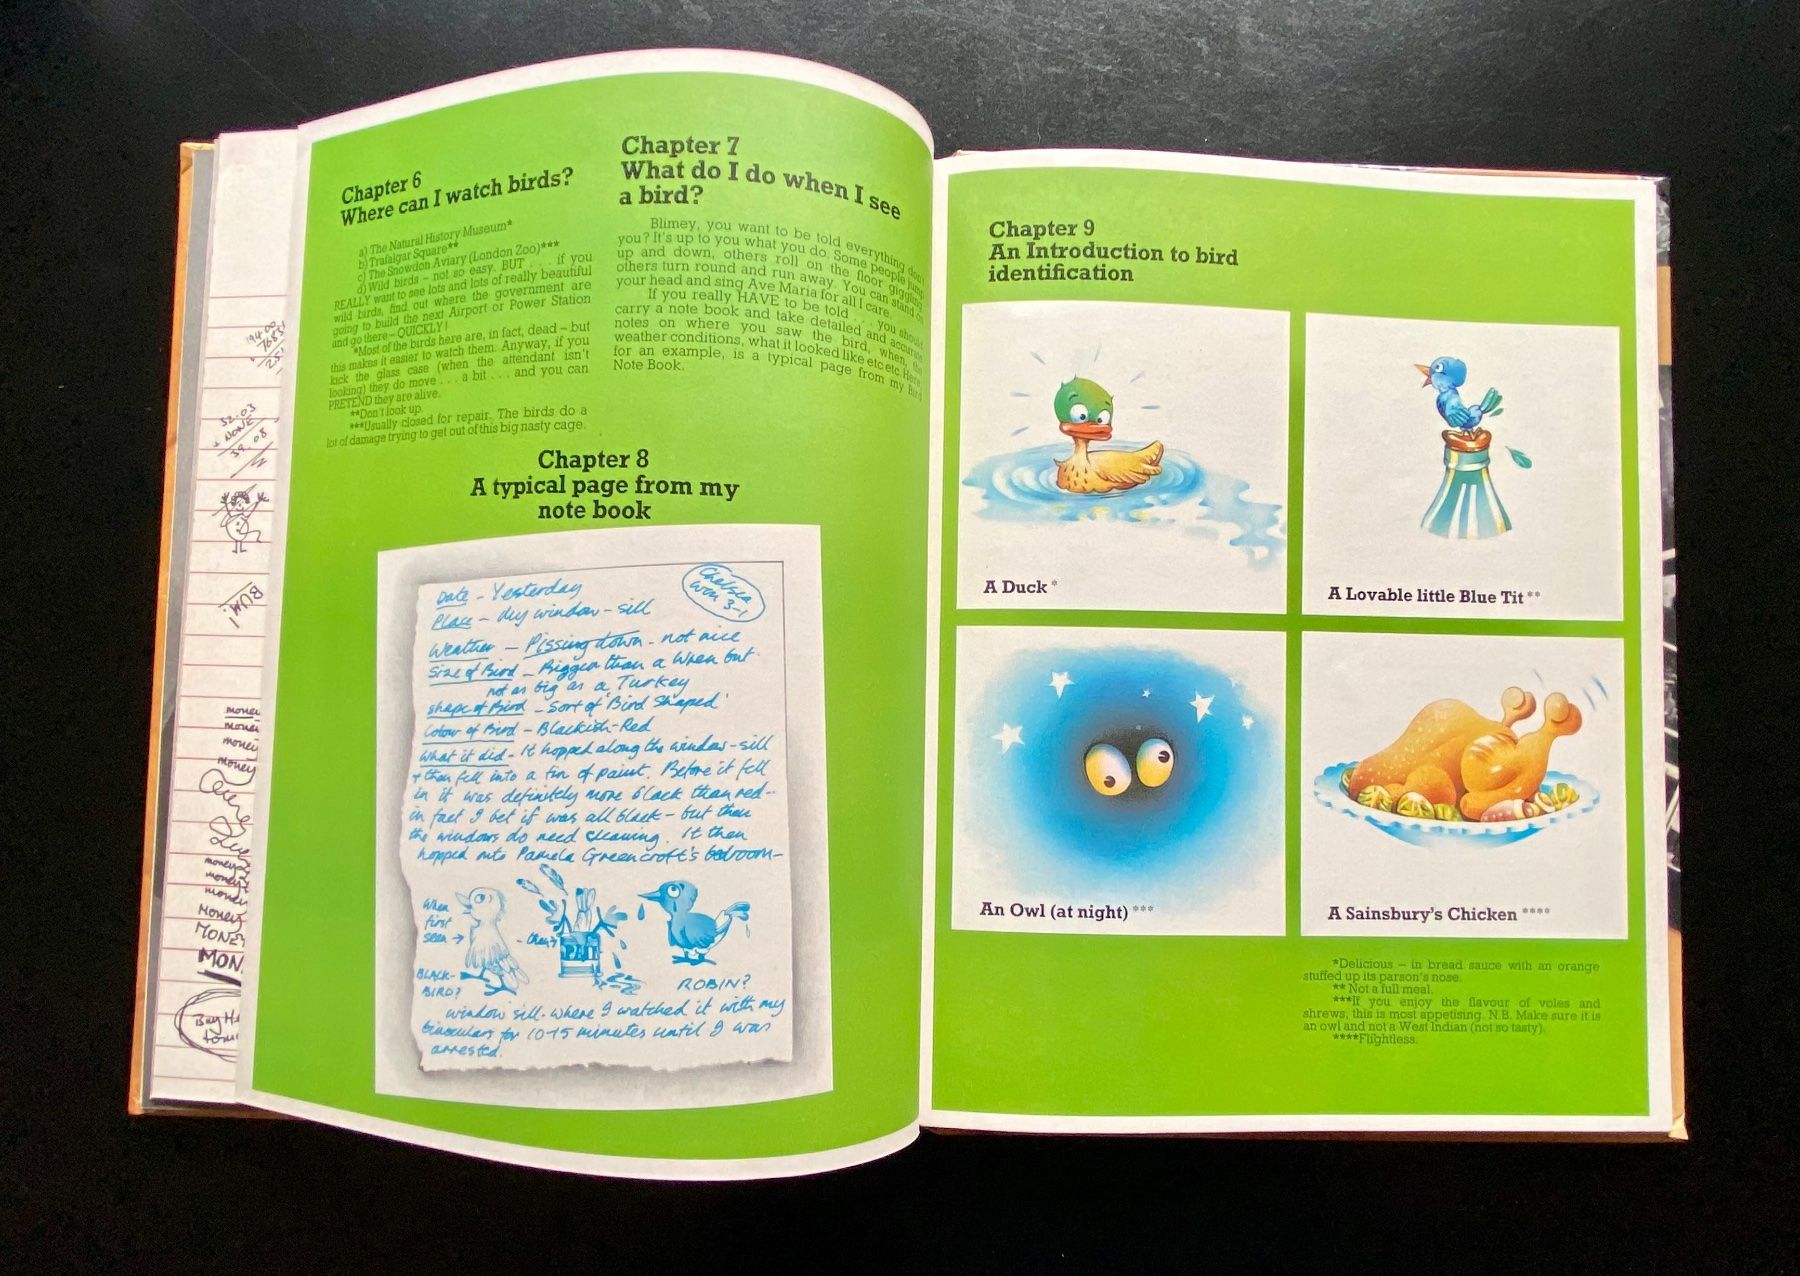 194.00
76.85
52.03
+ NONE
39.08
BUM!
money
money
money
money
money
money
money
Money
MONEY
MON
Chapter 6
Where can I watch birds?
a) The Natural History Museum*
b) Trafalgar Square**
c) The Snowdon Aviary (London Zoo)***
d) Wild birds – not so easy. BUT . . . if you
REALLY want to see lots and lots of really beautiful
wild birds, find out where the government are
going to build the next Airport or Power Station
and go there – QUICKLY!
*Most of the birds here are, in fact, dead – but
this makes it easier to watch them. Anyway, if you
kick the glass case (when the attendant isn't
looking) they do move . . . a bit . . . and you can
PRETEND they are alive.
**Don't look up.
***Usually closed for repair. The birds do a
lot of damage trying to get out of this big nasty cage.
Chapter 7
What do I do when I see
a bird?
Blimey, you want to be told everything don't
you? It's up to you what you do. Some people jump
up and down, others roll on the floor giggling,
others turn round and run away. You can stand on
your head and sing Ave Maria for all I care.
If you really HAVE to be told . . . you should
carry a note book and take detailed and accurate
notes on where you saw the bird, when, the
weather conditions, what it looked like etc etc. Here
for an example, is a typical page from my Bird
Note Book.
Chapter 8
A typical page from my
note book
Chelsea
won 3-1
Date - Yesterday
Place - my window-sill
Weather - Pissing down - not nice
Size of Bird - Bigger than a Wren but
not as big as a Turkey
shape of Bird - Sort of 'Bird Shaped'
Colour of Bird - Blackish-Red
What it did - It hopped along the window-sill
+ then fell into a tin of paint. Before it fell
in it was definitely more black than red -
in fact I bet it was all black - but then
the windows do need cleaning. It then
hopped onto Pamela Greencroft's bedroom -
When
first
seen →
- then →
BLACK-
BIRD?
ROBIN?
window sill - where I watched it with my
binoculars for 10-15 minutes until I was
arrested.
Chapter 9
An Introduction to bird
identification
A Duck *
A Lovable little Blue Tit **
An Owl (at night) ***
A Sainsbury's Chicken ****
*Delicious – in bread sauce with an orange
stuffed up its parson's nose.
** Not a full meal.
***If you enjoy the flavour of voles and
shrews, this is most appetising. N.B. Make sure it is
an owl and not a West Indian (not so tasty).
****Flightless.